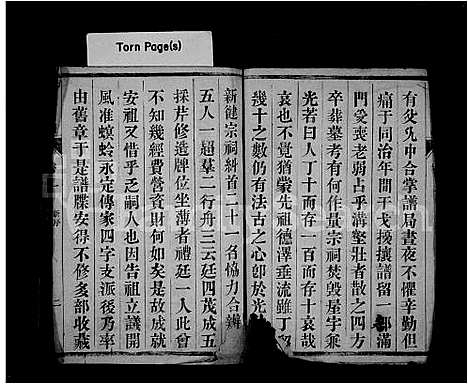 Torn Page(s)
有爻先中合掌譜局晝夜不憚辛勤但
痛于同治年間干戈擾攘譜留一部滿
門爻喪老弱占乎溝壑壯者散之四方
卒葬墓考有何作量宗祠焚毀屋宇
光者曰人丁十而存一百而存十哀哉
哀也不覺猶蒙先祖德澤垂流雖丁
幾十之數仍有法古之心卽於光
新健宗祠糾首二十一名協力合辦
五人一超羣二行舟三云廷四茂成五
採芹修造牌位坐薄者禮廷一人此會
不知幾經費營資財何如矣是故成就
安祖又惜乎乏嗣人也因告祖立議開
風准螟蛉永定傳家四字支派後乃率
由舊章于是譜牒安得不修多部收藏
二